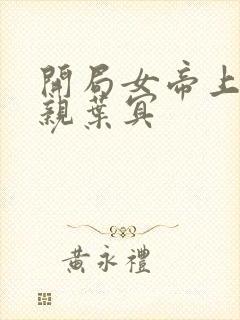 開局女帝上
親葉宜
黃永禮